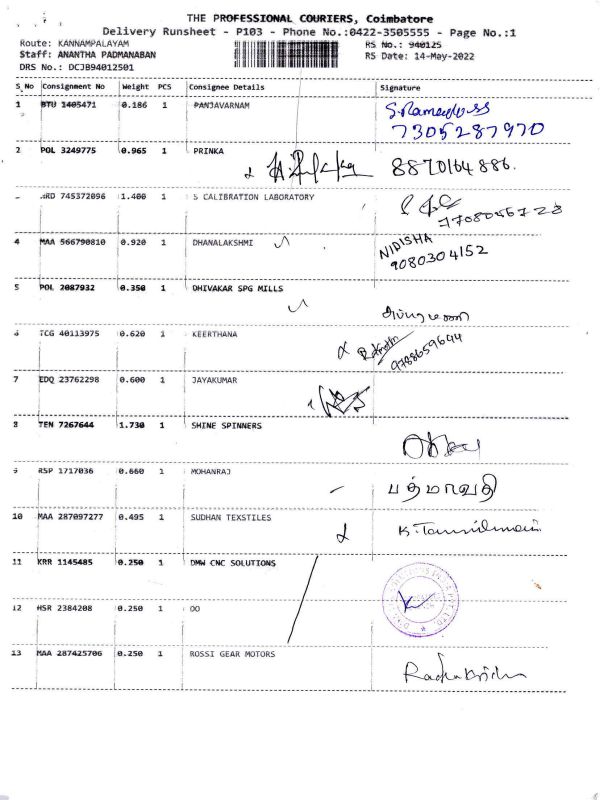 THE PROFESSIONAL COURIERS, Coimbatore
Delivery Runsheet - P103 - Phone No.:0422-3505555 - Page No.:1
Route: KANNAMPALAYAM RS No.: 940125
Staff: ANANTHA PADMANABAN RS Date: 14-May-2022
DRS No.: DCJB94012501
S_No Consignment No Weight PCS Consignee Details Signature
1 BTU 1405471 0.186 1 PANJAVARNAM
7305287970
2 POL 3249775 0.965 1 PRINKA 8870164886.
ARD 745372096 1.400 1 S CALIBRATION LABORATORY
7708056728
4 MAA 566790810 0.920 1 DHANALAKSHMI NIDISHA
9080304152
5 POL 2087932 0.350 1 DHIVAKAR SPG MILLS
6 TCG 40113975 0.620 1 KEERTHANA
9788659644
7 EDQ 23762298 0.600 1 JAYAKUMAR
8 TEN 7267644 1.730 1 SHINE SPINNERS
9 RSP 1717036 0.660 1 MOHANRAJ
பத்மாவதி
10 MAA 287097277 0.495 1 SUDHAN TEXSTILES
11 KRR 1145485 0.250 1 DMW CNC SOLUTIONS
12 HSR 2384208 0.250 1 OO
13 MAA 287425706 0.250 1 ROSSI GEAR MOTORS